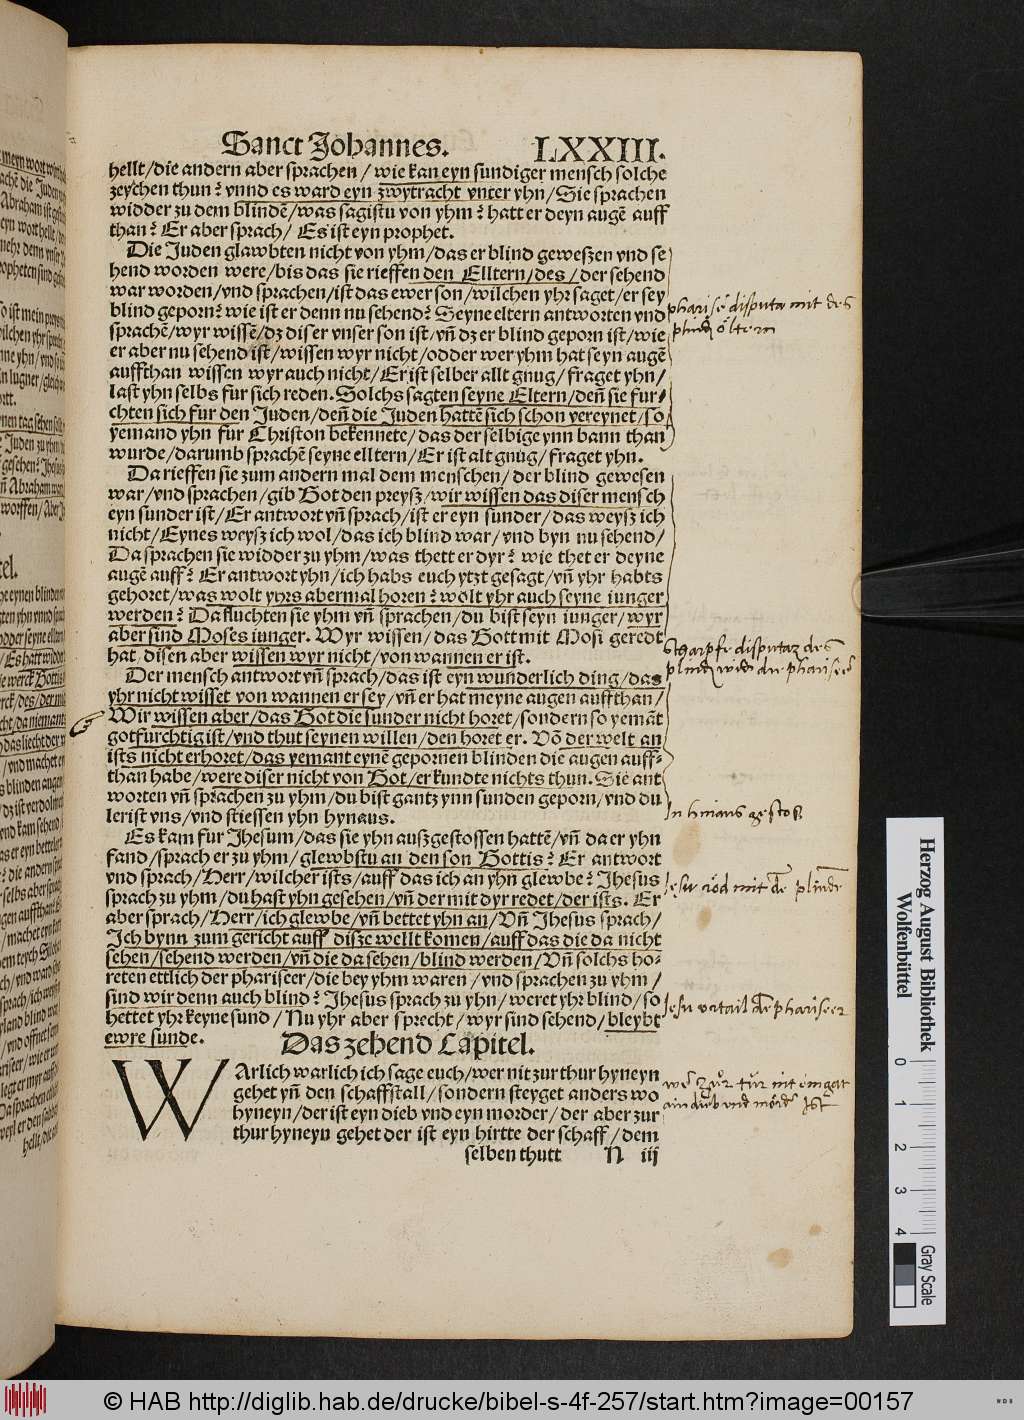 Sanct Johannes. LXXIII.
hellt/die andern aber sprachen/ wie kan eyn sundiger mensch solche
zeychen thun? vnnd es ward eyn zwytracht vnter yhn/ Sie sprachen
widder zu dem blindē/was sagistu von yhm? hatt er deyn augē auff
than? Er aber sprach/ Es ist eyn prophet.
Die Juden glawbten nicht von yhm/das er blind geweszen vnd se
hend worden were/bis das sie rieffen den Elltern/des/ der sehend
war worden/vnd sprachen/ist das ewer son/wilchen yhr saget/er sey
blind geporn? wie ist er denn nu sehend? Seyne eltern antworten vnd
sprachē/wyr wissē/dz diser vnser son ist/vn̄ dz er blind geporn ist/wie
er aber nu sehend ist/wissen wyr nicht/odder wer yhm hat seyn augē
auffthan wissen wyr auch nicht/Er ist selber allt gnug/fraget yhn/
last yhn selbs fur sich reden. Solchs sagten seyne Eltern/den̄ sie fur-
chten sich fur den Juden/den̄ die Juden hattē sich schon vereynet/so
yemand yhn fur Christon bekennete/das der selbige ynn bann than
wurde/darumb sprachē seyne elltern/Er ist alt gnug/fraget yhn.
Da rieffen sie zum andern mal dem menschen/der blind gewesen
war/vnd sprachen/gib Got den preysz/wir wissen das diser mensch
eyn sunder ist/Er antwort vn̄ sprach/ist er eyn sunder/das weysz ich
nicht/Eynes weysz ich wol/das ich blind war/vnd byn nu sehend/
Da sprachen sie widder zu yhm/was thett er dyr? wie thet er deyne
augē auff? Er antwort yhn/ich habs euch ytzt gesagt/vn̄ yhr habts
gehoret/was wolt yhrs abermal horen? wolt yhr auch seyne iunger
werden? Da fluchten sie yhm vn̄ sprachen/du bist seyn iunger/wyr
aber sind Moses iunger. Wyr wissen/das Gott mit Mosi geredt
hat/disen aber wissen wyr nicht/von wannen er ist.
Der mensch antwort vn̄ sprach/das ist eyn wunderlich ding/das
yhr nicht wisset von wannen er sey/vn̄ er hat meyne augen auffthan/
Wir wissen aber/das Got die sunder nicht horet/sondern so yemāt
gotfurchtig ist/vnd thut seynen willen/den horet er. Vō der welt an
ists nicht erhoret/das yemant eynē gepornen blinden die augen auff-
than habe/were diser nicht von Got/er kundte nichts thun. Sie ant
worten vn̄ sprachen zu yhm/du bist gantz ynn sunden geporn/vnd du
lerist vns/vnd stiessen yhn hynaus.
Es kam fur Jhesum/das sie yhn auszgestossen hattē/vn̄ da er yhn
fand/sprach er zu yhm/glewbstu an den son Gottis? Er antwort
vnd sprach/Herr/wilcher ists/auff das ich an yhn glewbe? Jhesus
sprach zu yhm/du hast yhn gesehen/vn̄ der mit dyr redet/der ists. Er
aber sprach/Herr/ich glewbe/vn̄ bettet yhn an/Vn̄ Jhesus sprach/
Ich bynn zum gericht auff disze wellt komen/auff das die da nicht
sehen/sehend werden/vn̄ die da sehen/blind werden/Vn̄ solchs ho-
reten ettlich der phariseer/die bey yhm waren/vnd sprachen zu yhm/
sind wir denn auch blind? Jhesus sprach zu yhn/weret yhr blind/so
hettet yhr keyne sund/Nu yhr aber sprecht/wyr sind sehend/bleybt
ewre sunde.
Das zehend Capitel.
WArlich warlich ich sage euch/wer nit zur thur hyneyn
gehet yn̄ den schaffstall/sondern steyget anders wo
hyneyn/der ist eyn dieb vnd eyn morder/der aber zur
thur hyneyn gehet der ist eyn hirtte der schaff/dem
selben thutt N iij
disputa mit des
scharpfe disputaz des
In hinaus gestos
Jesu red mit
Jesu
Herzog August Bibliothek
Wolfenbüttel
0 1 2 3 4
Gray Scale
© HAB http://diglib.hab.de/drucke/bibel-s-4f-257/start.htm?image=00157